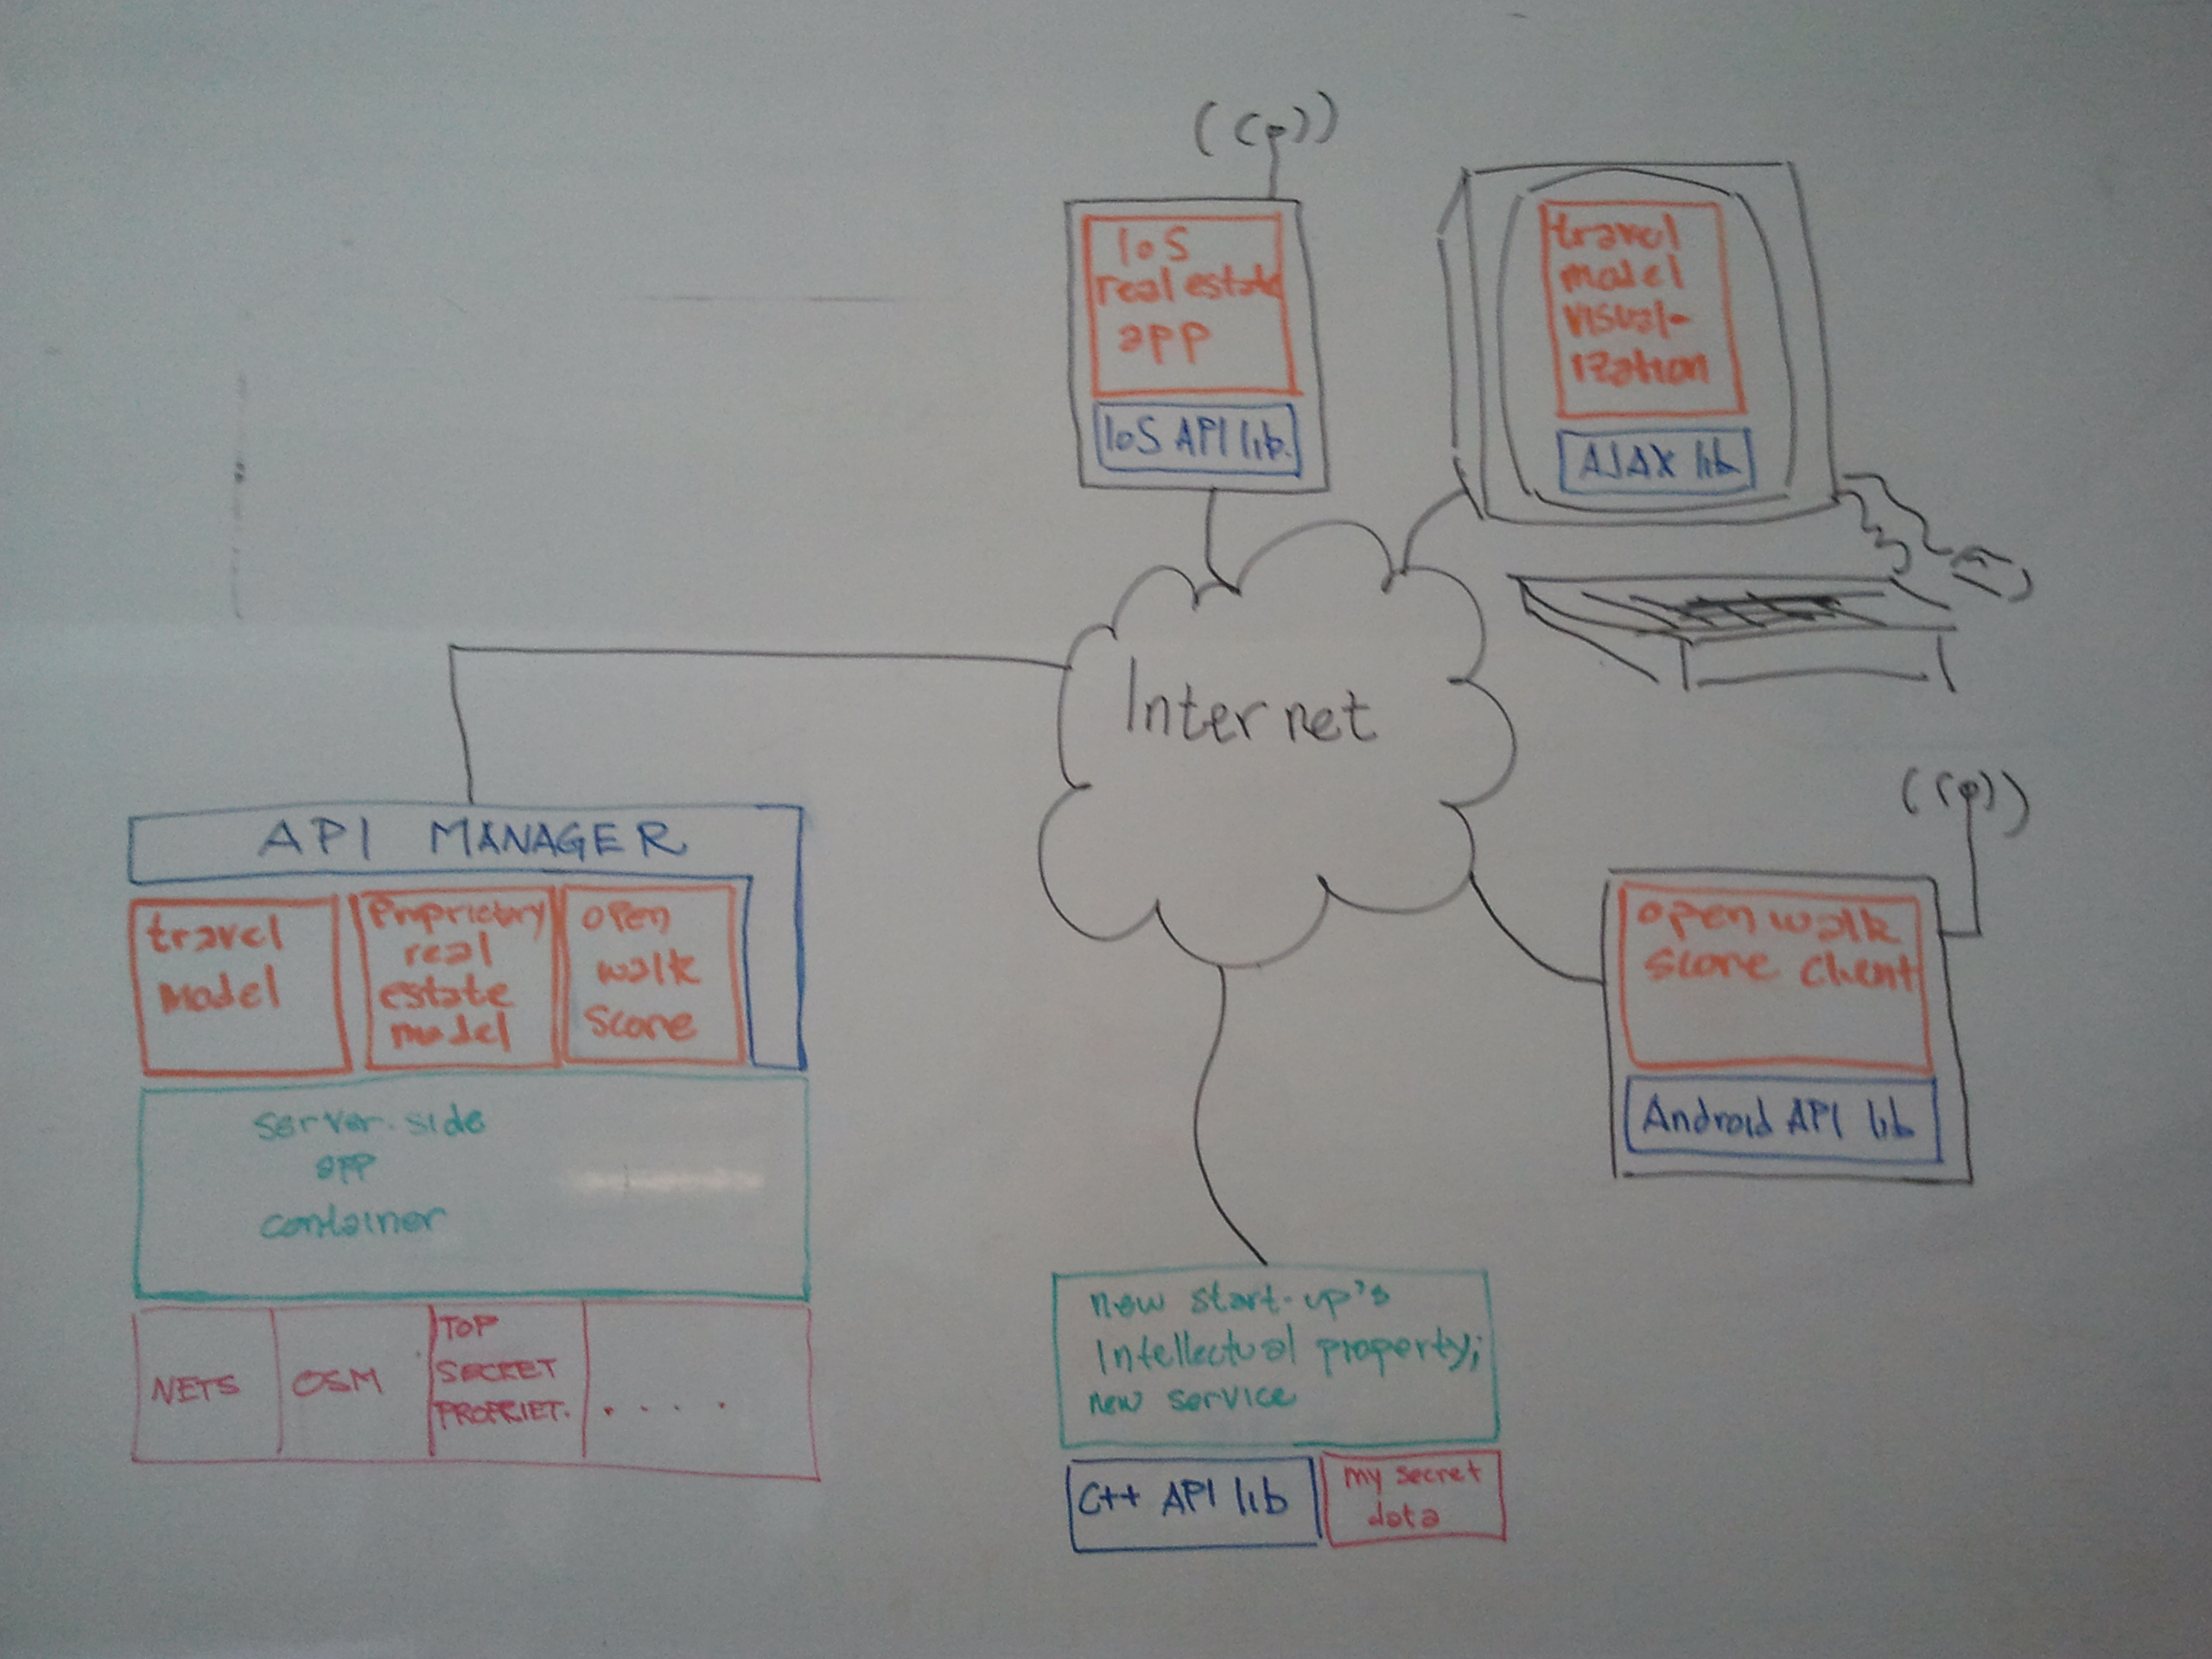 IoS
real estate
app
IoS API lib.
travel
model
visual-
ization
AJAX lib
Internet
API MANAGER
travel
model
Proprietary
real
estate
model
open
walk
score
server-side
app
container
NETS
OSM
TOP
SECRET
PROPRIET.
. . . .
open walk
score client
Android API lib
new start-up's
Intellectual property;
new service
C++ API lib
my secret
data